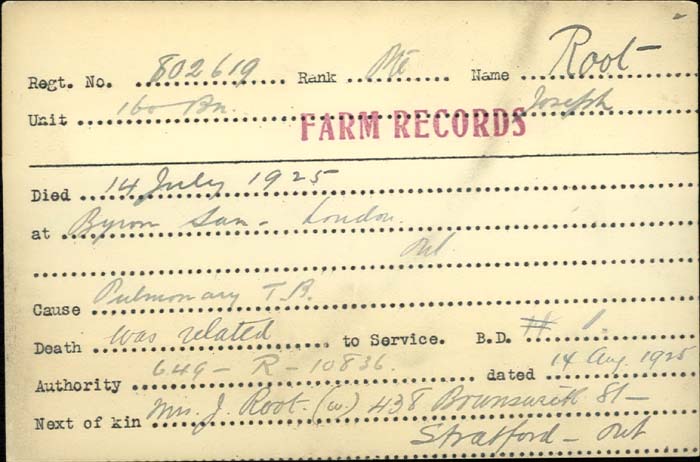 Regt. No. 802619 Rank Pte Name Root
Unit 160 Bn Joseph
FARM RECORDS
Died 14 July 1925
at Byron San - London.
Ont.
Cause Pulmonary T.B.
Death was related to Service. B.D. # 1.
Authority 649 - R - 10836. dated 14 Aug. 1925
Next of kin Mrs. J. Root. (w.) 438 Brunswick St -
Stratford - Ont